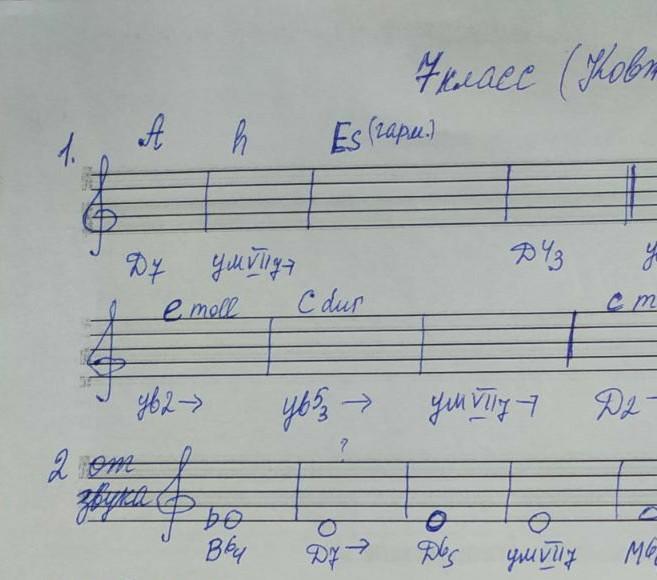 7 класс (Ковж
1. A h Es (гарм.)
D7 умVII7→ D4/3 у
e moll C dur c m
ув2→ ув5/3 → умVII7→ D2
2 от ?
звука
Б6/4 D7→ D6/5 умVII7 М6